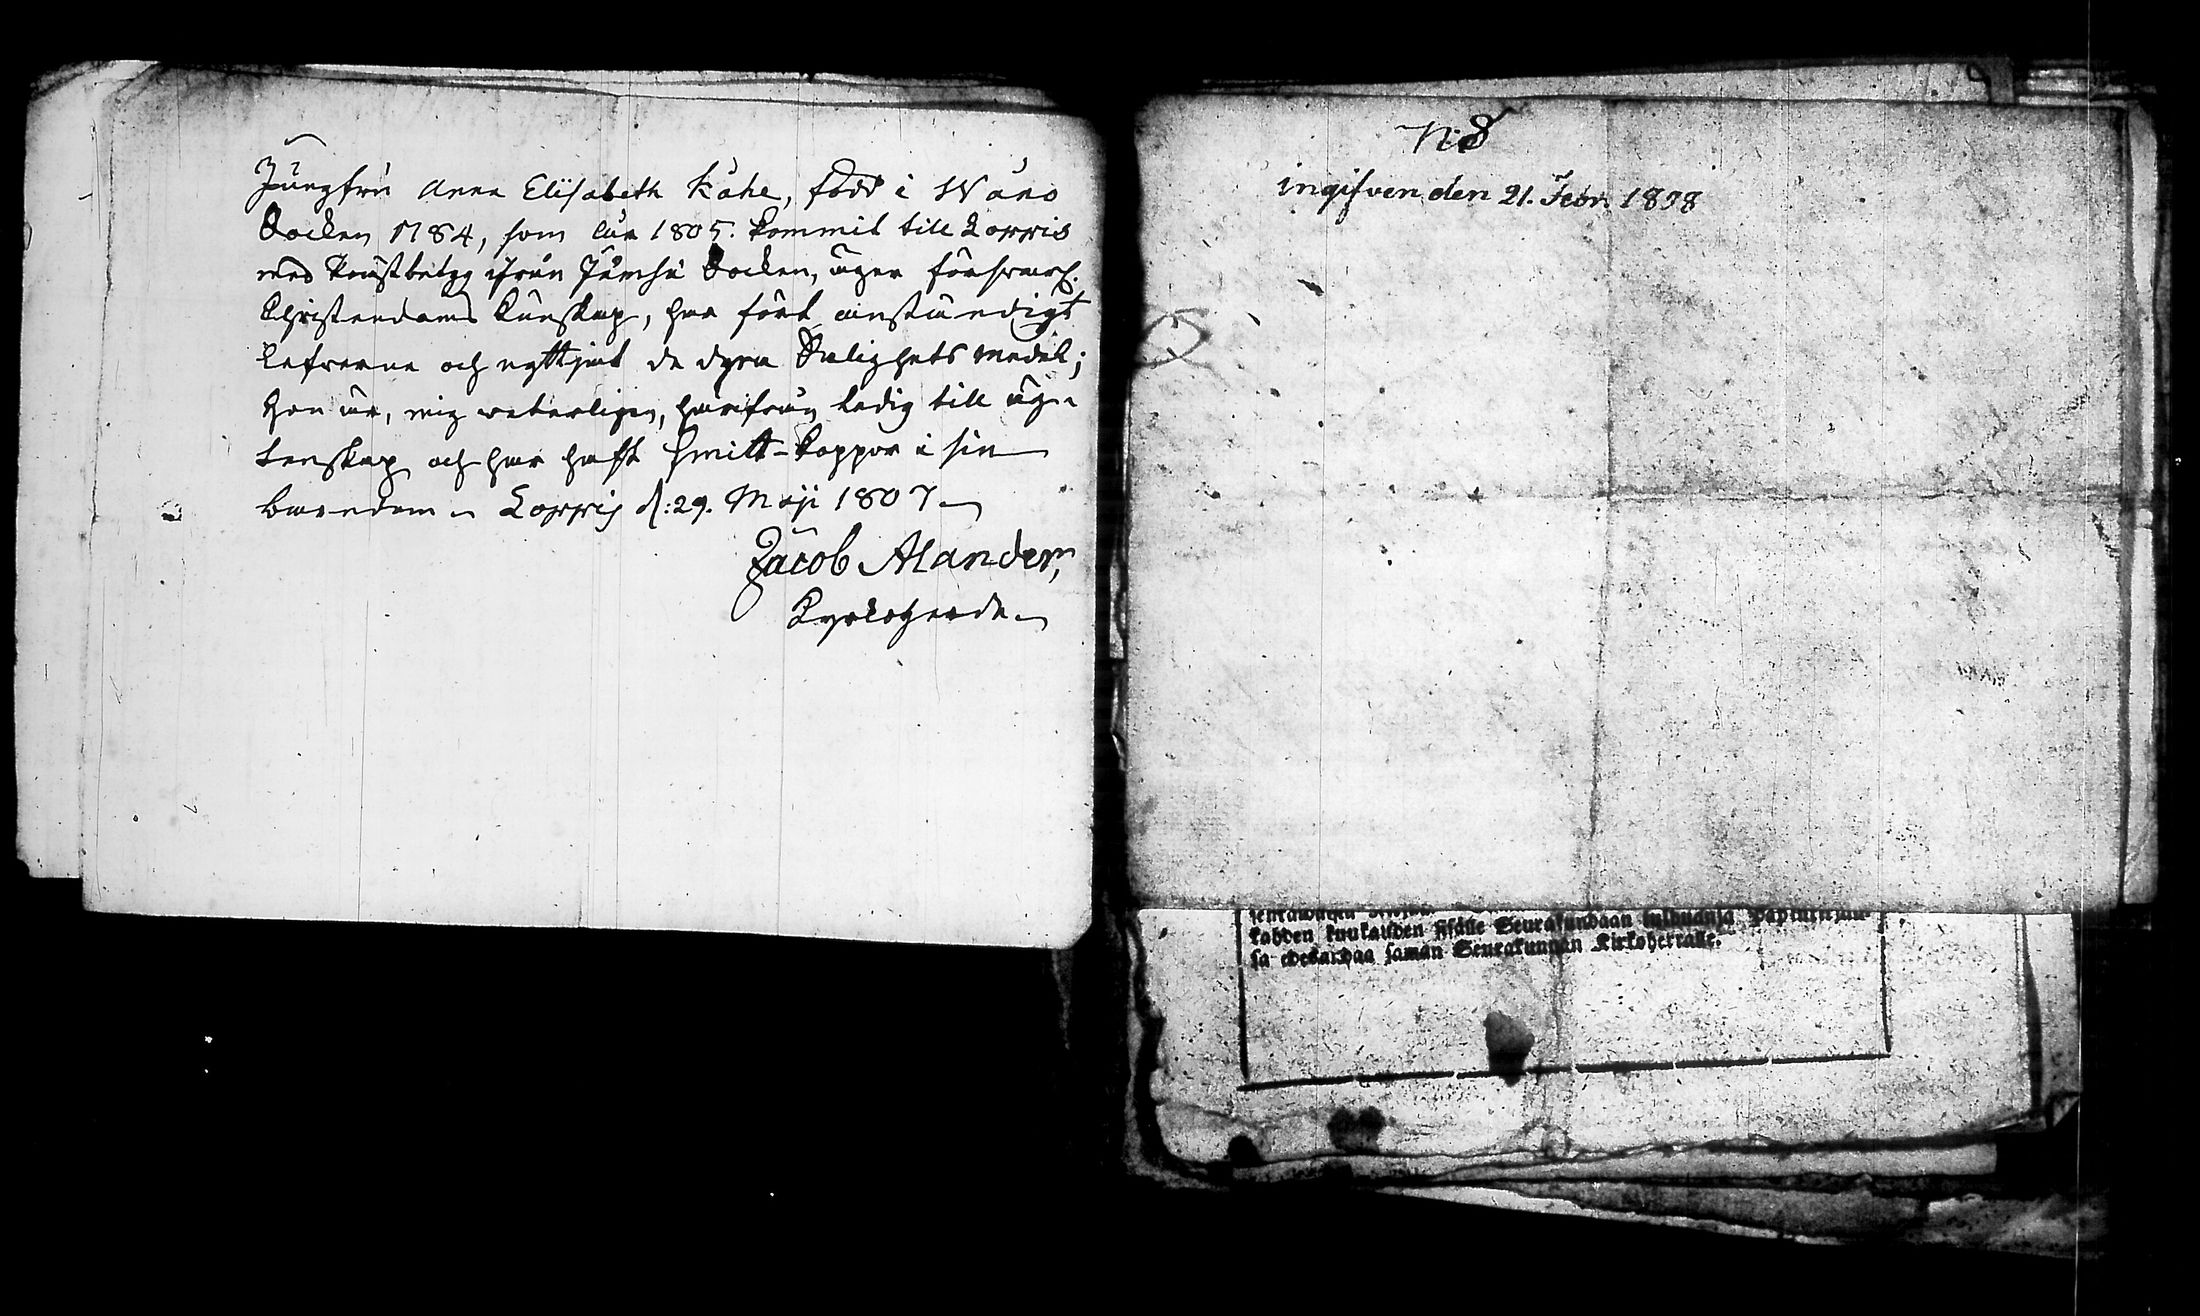 Jungfru Anna Elisabeth Kahe, född i Wåno
Socken 1784, som lär 1805. kommit till Loppis
med Prästbetyg ifrån Jämsä Socken, äger förswarl.
Christendoms kunskap, har fört anständigt
Lefwerne och nyttjat de dyra Salighets medel;
hon är, mig weterligen, härifrån ledig till äg-
tenskap och har haft smitt-koppor i sin
barndom. Loppis d: 29. Maji 1807
Jacob Alander,
Kyrkoherde.
N: 8
ingifven den 21. Febr. 1808
kahden kuukauden sisälle Seurakundaan
sa edeskandaa saman Seurakunnan Kirkoherralle.